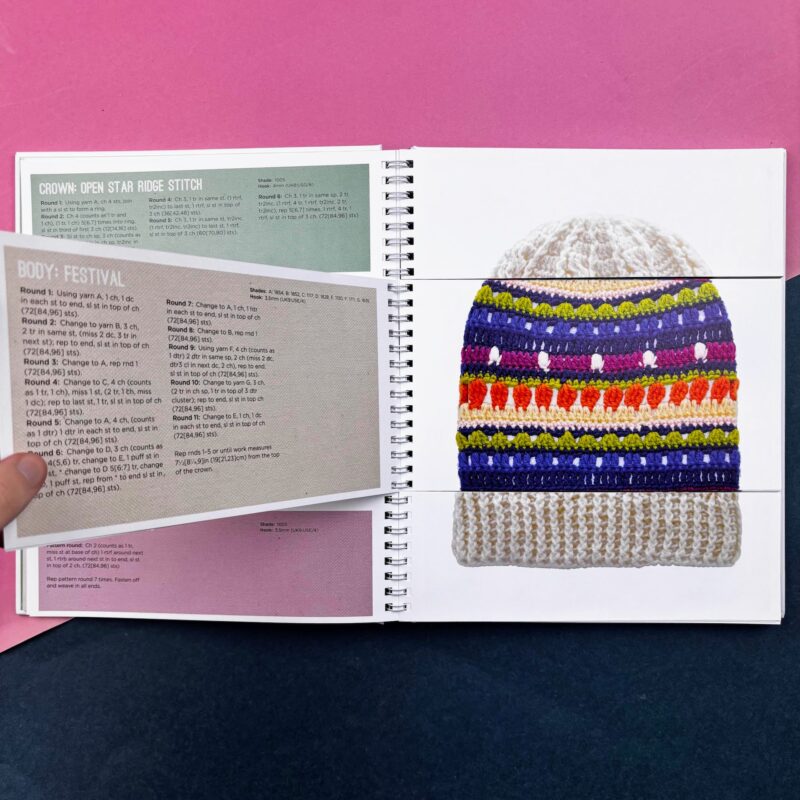 CROWN: OPEN STAR RIDGE STITCH
Shade: 1005
Hook: 4mm (UK8:USG/6)
Round 1: Using yarn A, ch 4 sts, join
with a sl st to form a ring.
Round 2: Ch 4 (counts as 1 tr and
1 ch), (1 tr, 1 ch) 5[6,7] times into ring,
sl st in third of first 3 ch (12[14,16] sts).
Round 4: Ch 3, 1 tr in same st, (1 rtrf,
tr2inc) to last st, 1 rtrf, sl st in top of
3 ch (36[42,48] sts).
Round 5: Ch 3, 1 tr in same st, tr2inc
(1 rtrf, tr2inc, tr2inc) to last st, 1 rtrf,
sl st in top of 3 ch (60[70,80] sts).
Round 6: Ch 3, 1 tr in same sp, 2 tr
tr2inc, (1 rtrf, 4 tr, 1 rtrf, tr2inc, 2 tr,
tr2inc), rep 5[6,7] times, 1 rtrf, 4 tr, 1
rtrf, sl st in top of 3 ch (72[84,96] sts).
BODY: FESTIVAL
Round 1: Using yarn A, 1 ch, 1 dc
in each st to end, sl st in top of ch
(72[84,96] sts).
Round 2: Change to yarn B, 3 ch,
2 tr in same st, (miss 2 dc, 3 tr in
next st); rep to end, sl st in top of ch
(72[84,96] sts).
Round 3: Change to A, rep rnd 1
(72[84,96] sts).
Round 4: Change to C, 4 ch (counts
as 1 tr, 1 ch), miss 1 st, (2 tr, 1 ch, miss
1 dc); rep to last st, 1 tr, sl st in top of ch
(72[84,96] sts).
Round 5: Change to A, 4 ch, (counts
as 1 dtr) 1 dtr in each st to end, sl st in
top of ch (72[84,96] sts).
Round 6: Change to D, 3 ch (counts as
4(5,6) tr, change to E, 1 puff st in
st, * change to D 5[6:7] tr, change
1 puff st, rep from * to end sl st in
of ch (72[84,96] sts).
Round 7: Change to A, 1 ch, 1 htr
in each st to end, sl st in top of ch
(72[84,96] sts).
Round 8: Change to B, rep rnd 1
(72[84,96] sts).
Round 9: Using yarn F, 4 ch (counts
as 1 dtr) 2 dtr in same sp, 2 ch (miss 2 dc,
dtr3 cl in next dc, 2 ch), rep to end,
sl st in top of ch (72[84,96] sts).
Round 10: Change to yarn G, 3 ch,
(2 tr in ch sp, 1 tr in top of 3 dtr
cluster); rep to end, sl st in top of ch
(72[84,96] sts).
Round 11: Change to E, 1 ch, 1 dc
in each st to end, sl st in top of ch
(72[84,96] sts).
Rep rnds 1–5 or until work measures
of the crown.
Hook: 3.5mm (UK9:USE/4)
Shade: 1005
Hook: 3.5mm (UK9:USE/4)
Pattern round: Ch 2 (counts as 1 tr,
miss st at base of ch) 1 rtrf around next
st, 1 rtrb around next st in to end, sl st
in top of 2 ch. (72[84,96] sts)
Rep pattern round 7 times. Fasten off
and weave in all ends.